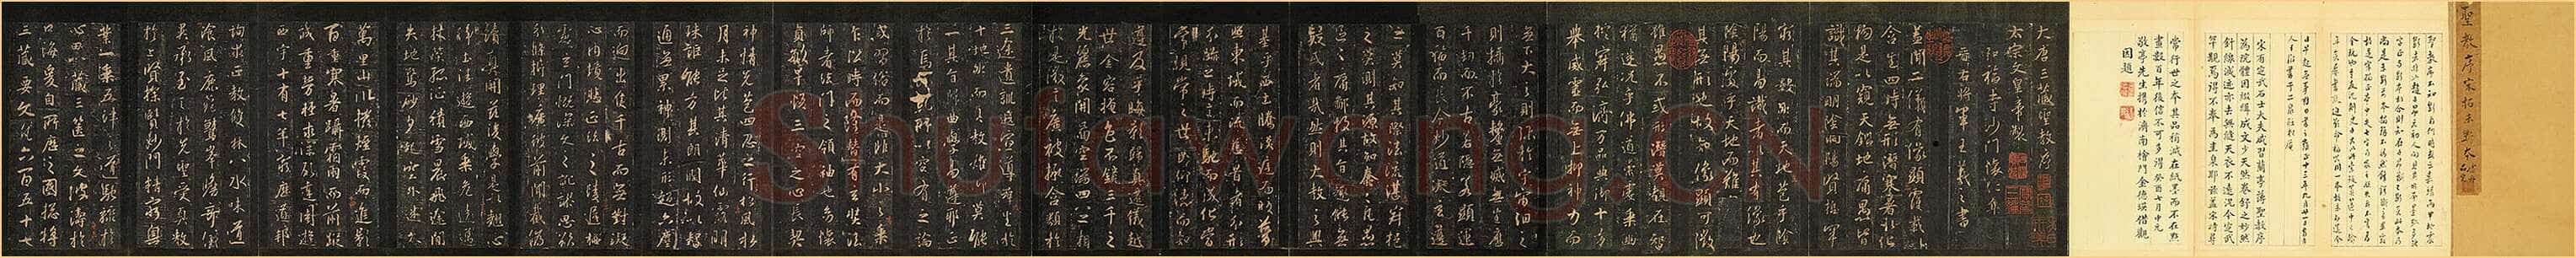 聖教序宋拓未斷本
宋有定武石士大夫咸習蘭亭諸聖教序
為院體因綴緝成文少天然卷舒之妙然
針線滅迹亦去無縫天衣不遠況今定武
罕覯焉得不奉為圭臬耶茲蓋宋時尋
常行世之本其品稍減在紙墨而不在點
畫數百年後信不可多得癸酉七月中元
敬亭先生攜於濟南檜門金德瑛借觀
因題
大唐三藏聖教序
太宗文皇帝製
弘福寺沙門懷仁集
晉右將軍王羲之書
蓋聞二儀有像顯覆載以
含生四時無形潛寒暑以化
物是以窺天鑑地庸愚皆
識其端明陰洞陽賢哲罕
窮其數然而天地苞乎陰
陽而易識者以其有像也
陰陽處乎天地而難窮者以
其無形也故知像顯可徵
雖愚不惑形潛莫覩在智
猶迷況乎佛道崇虛乘幽
控寂弘濟萬品典御十方
舉威靈而無上抑神力而
無下大之則彌於宇宙細之
則攝於豪釐無滅無生歷
千劫而不古若隱若顯運
百福而長今妙道凝玄遵
之莫知其際法流湛寂挹
之莫測其源故知蠢蠢凡愚
區區庸鄙投其旨趣能無
疑惑者哉然則大教之興
基乎西土騰漢庭而皎夢
照東域而流慈昔者分形
分跡之時言未馳而成化當
常現常之世民仰德而知
遵及乎晦影歸真遷儀越
世金容掩色不鏡三千之
光麗象開圖空端四八之相
於是微言廣被拯含類於
三途遺訓遐宣導群生於
十地然而真教難仰莫能
一其旨歸曲學易遵邪正
於焉紛糺所以空有之論
或習俗而是非大小之乘
乍沿時而隆替有玄奘法
師者法門之領袖也幼懷
貞敏早悟三空之心長契
神情先苞四忍之行松風水
月未足比其清華仙露明
珠詎能方其朗潤故以智
通無累神測未形超六塵
而迥出隻千古而無對凝
心內境悲正法之陵遲栖
慮玄門慨深文之訛謬思欲
分條析理廣彼前聞截偽
續真開茲後學是以翹心
淨土法遊西域乘危遠邁
杖策孤征積雪晨飛途閒
失地驚砂夕起空外迷天
萬里山川撥煙霞而進影
百重寒暑躡霜雨而前蹤
誠重勞輕求深願達周遊
西宇十有七年窮歷道邦
詢求正教雙林八水味道
飡風鹿苑鷲峯瞻奇仰
異承至言於先聖受真教
於上賢探賾妙門精窮奧
業一乘五律之道馳驟於
心田八藏三篋之文波濤於
口海爰自所歷之國總將
三藏要文凡六百五十七
Shufawang.CN